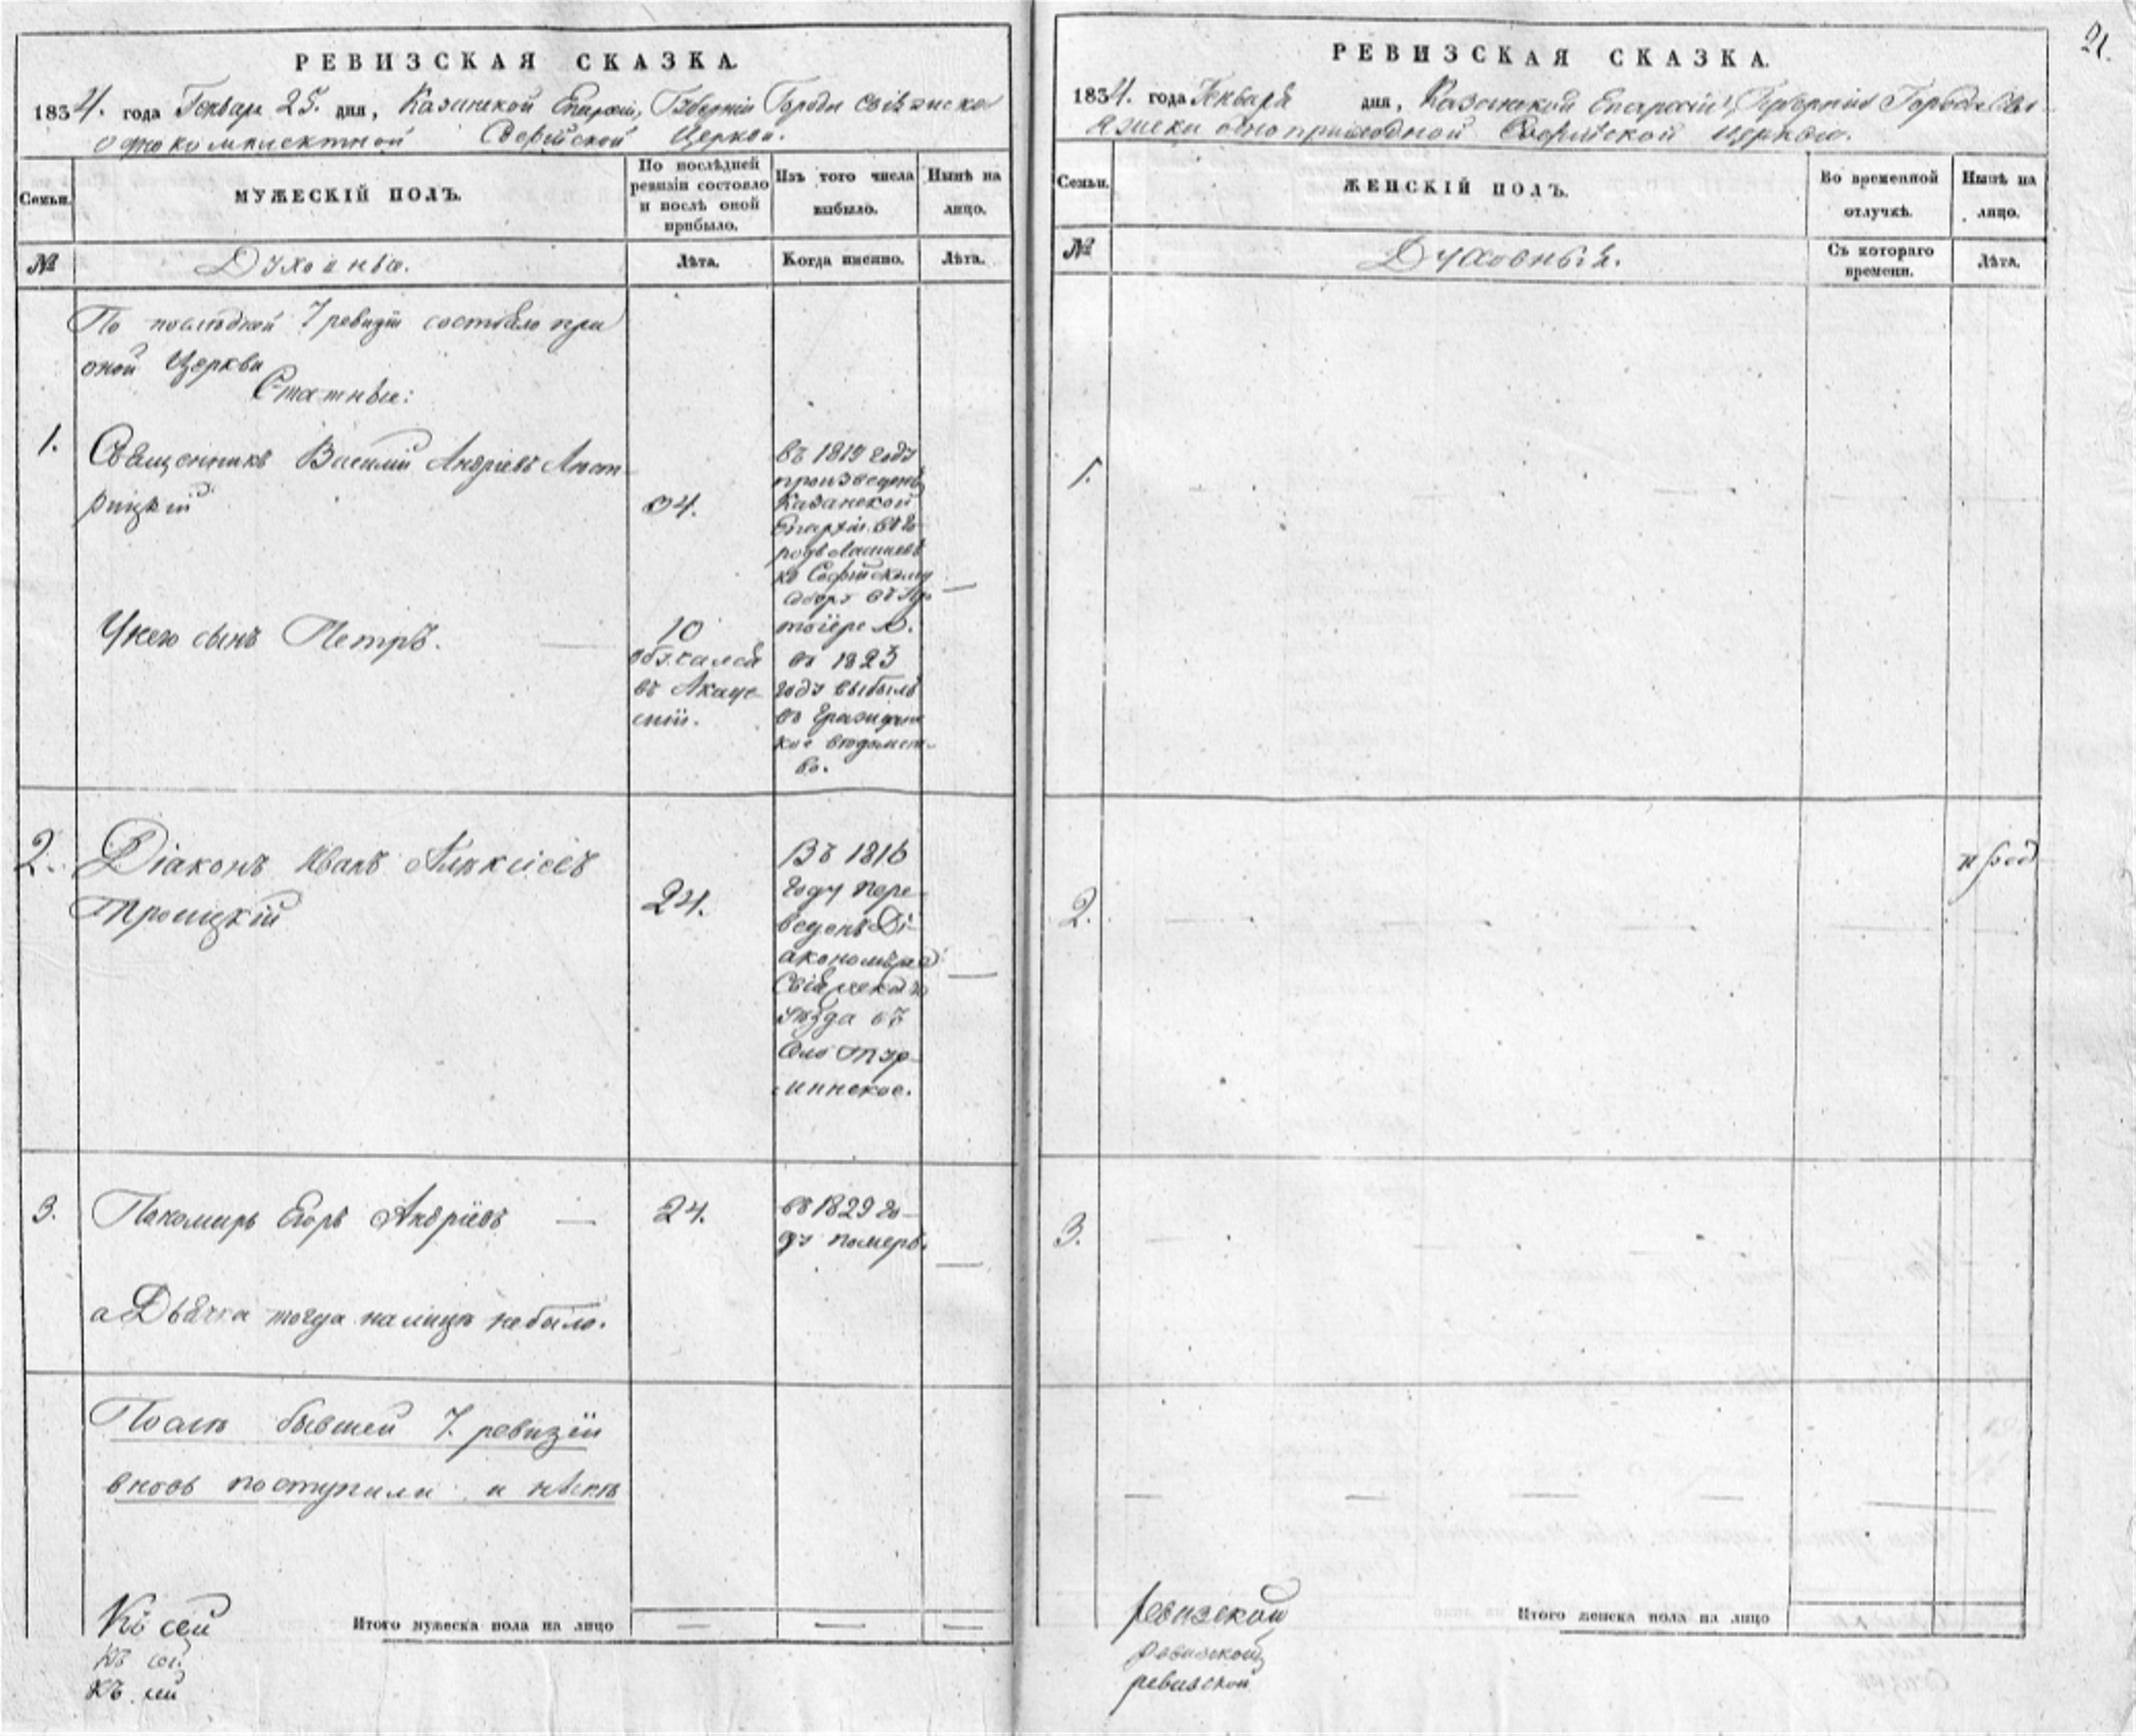 РЕВИЗСКАЯ СКАЗКА.
1834. года Генваря 25. дня, Казанской Епархіи, Губерніи Города Свіяжска
однокомплектной Софійской Церкви.
Семьи. МУЖЕСКІЙ ПОЛЪ. По послѣдней ревизіи состояло и послѣ оной прибыло. Изъ того числа выбыло. Нынѣ на лицо.
№ Духовные. Лѣта. Когда именно. Лѣта.
По последней 7 ревизіи состояло при
оной Церкви
Статные:
1. Священникъ Василий Андріевъ
34.
въ 1819 году
произведенъ
Казанской
Епархіи въ го-
родъ Лаишевъ
къ Софійскому
собору въ Про-
тоіерея. —
У него сынъ Петръ. —
10
обучался
въ Акаде-
міи.
въ 1823
году выбылъ
въ Граждан
кое вѣдомст-
во.
2. Діаконъ Иванъ Алексіевъ
Троицкій
24.
Въ 1816
году пере-
веденъ Ді-
акономъ
Свіяжскаго
уѣзда въ
Село Тур-
минское. —
3. Пономарь Егоръ Андріевъ —
24.
въ 1829 го-
ду померъ. —
а Дьячка тогда налицо небыло.
Послѣ бывшей 7. ревизіи
вновь поступили
Къ сей
Къ сей
Къ сей
Итого мужеска пола на лицо — — —
21.
РЕВИЗСКАЯ СКАЗКА.
1834. года Генваря дня, Казанской Епархіи, Губерніи Города Сві-
яжска одноприходной Софійской церкви.
Семьи. ЖЕНСКІЙ ПОЛЪ. Во временной отлучкѣ. Нынѣ на лицо.
№ Духовныя. Съ котораго времени. Лѣта.
1. — — — — —
2. — — — — —
3. — — — — —
— — — — —
ревизской
ревизской
ревизской
Итого женска пола на лицо